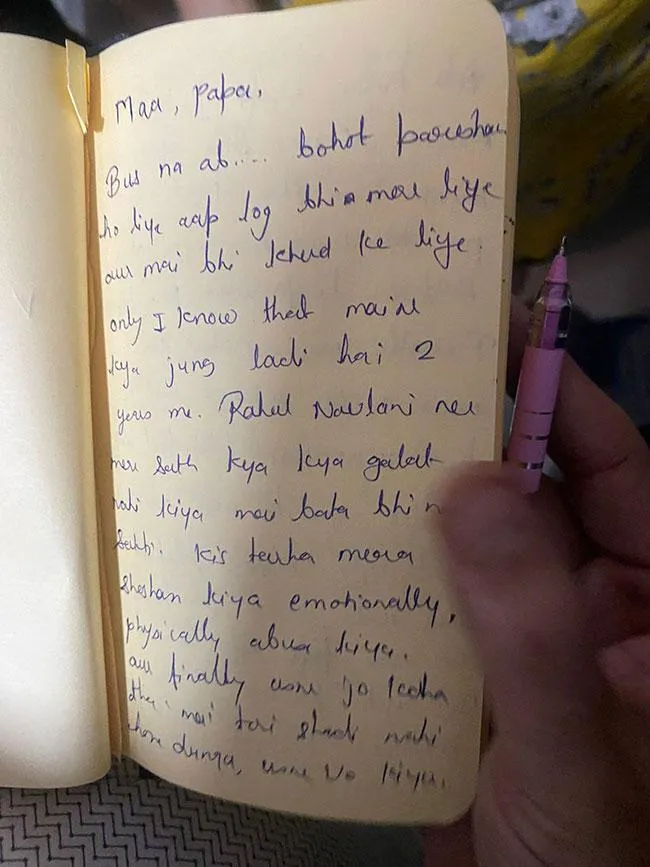 Maa, Papa,
Bus na ab.... bohot pareshan
ho liye aap log bhi mere liye
aur mai bhi khud ke liye.
only I know that maine
kya jung ladi hai 2
years me. Rahul Navlani ne
mere sath kya kya galat
nahi kiya mai bata bhi n
sakti. Kis tarha mera
shoshan kiya emotionally,
physically abuse kiya.
aur finally usne jo kaha
tha, mai teri shadi nahi
hone dunga, usne vo kiya.